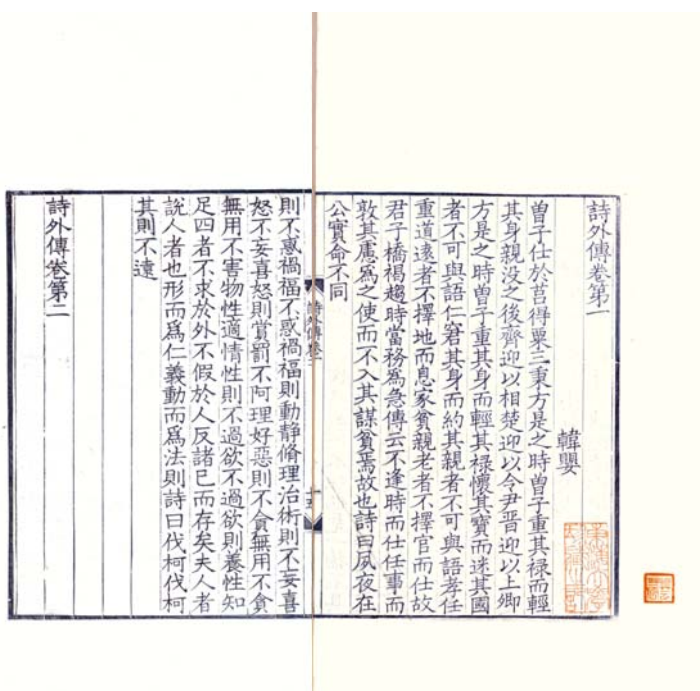 詩外傳卷第一
韓嬰
曾子仕於莒得粟三秉方是之時曾子重其禄而輕
其身親没之後齊迎以相楚迎以令尹晋迎以上卿
方是之時曾子重其身而輕其禄懷其寶而迷其國
者不可與語仁窘其身而約其親者不可與語孝任
重道遠者不擇地而息家貧親老者不擇官而仕故
君子橋褐趨時當務為急傳云不逢時而仕任事而
敦其慮爲之使而不入其謀貧焉故也詩曰夙夜在
公實命不同
則不惑禍福不惑禍福則動静脩理治術則不妄喜
怒不妄喜怒則賞罰不阿理好惡則不貪無用不貪
無用不害物性適情性則不過欲不過欲則養性知
足四者不求於外不假於人反諸已而存矣夫人者
說人者也形而爲仁義動而爲法則詩曰伐柯伐柯
其則不遠
詩外傳卷第二